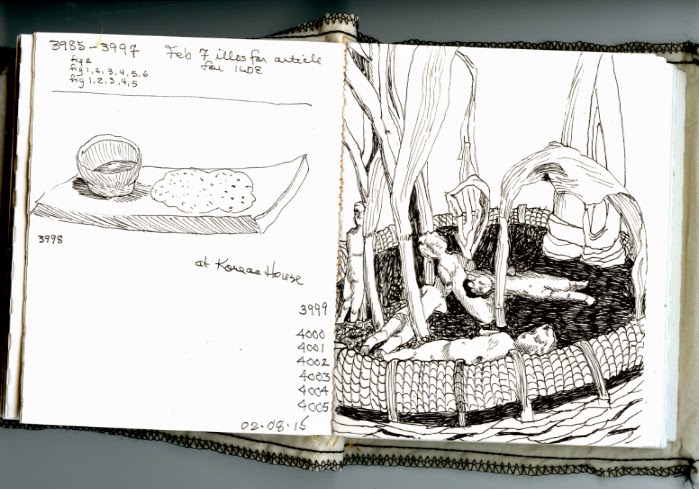 3985-3997 Feb 7 illos for article
for
fig 2
fig 1, 2, 3, 4, 5, 6
fig 1, 2, 3, 4, 5
3998
at Korean House
3999
4000
4001
4002
4003
4004
4005
02.08.15